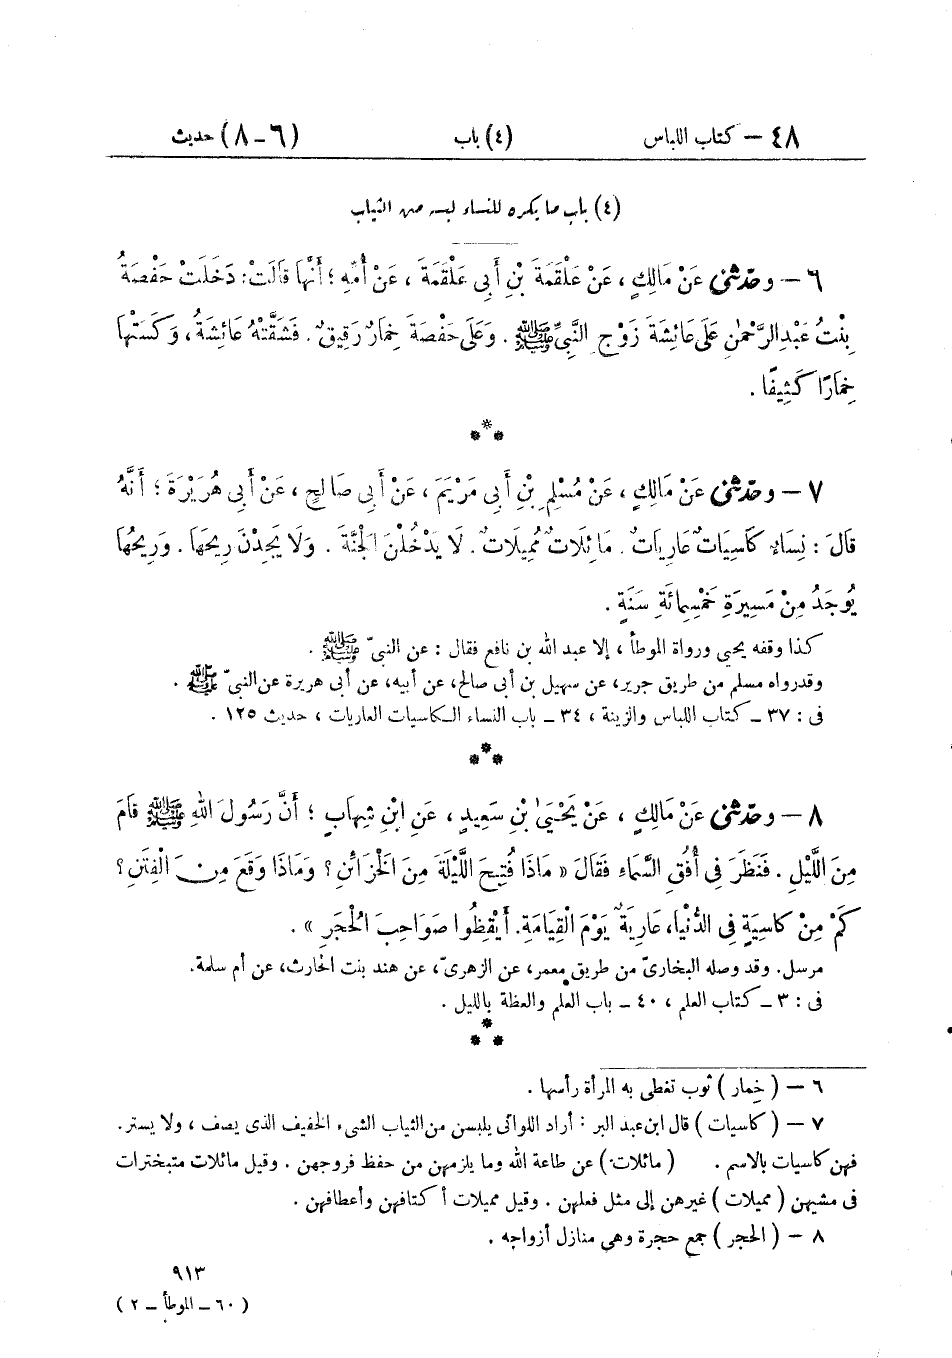 ٤٨ – كتاب اللباس (٤) باب (٦ – ٨) حديث
(٤) باب ما يكره للنساء لبسه من الثياب
٦ – وحدّثني عَنْ مَالِكٍ، عَنْ عَلْقَمَةَ بْنِ أَبِى عَلْقَمَةَ، عَنْ أُمِّهِ؛ أَنَّهَا قَالَتْ: دَخَلَتْ حَفْصَةُ
بِنْتُ عَبْدِ الرَّحْمٰنِ عَلَى عَائِشَةَ زَوْجِ النَّبِيِّ ﷺ. وَعَلَى حَفْصَةَ خِمَارٌ رَقِيقٌ. فَشَقَّتْهُ عَائِشَةُ، وَكَسَتْهَا
خِمَارًا كَثِيفًا.
***
٧ – وحدّثني عَنْ مَالِكٍ، عَنْ مُسْلِمِ بْنِ أَبِى مَرْيَمَ، عَنْ أَبِى صَالِحٍ، عَنْ أَبِى هُرَيْرَةَ؛ أَنَّهُ
قَالَ: نِسَاءٌ كَاسِيَاتٌ عَارِيَاتٌ. مَائِلَاتٌ مُمِيلَاتٌ. لَا يَدْخُلْنَ الْجَنَّةَ. وَلَا يَجِدْنَ رِيحَهَا. وَرِيحُهَا
يُوجَدُ مِنْ مَسِيرَةِ خَمْسِمِائَةِ سَنَةٍ.
كذا وقفه يحيى ورواة الموطأ، إلا عبد الله بن نافع فقال: عن النبىّ ﷺ.
وقد رواه مسلم من طريق جرير، عن سهيل بن أبى صالح، عن أبيه، عن أبى هريرة عن النبىّ ﷺ.
فى: ٣٧ – كتاب اللباس والزينة، ٣٤ – باب النساء الكاسيات العاريات، حديث ١٢٥.
***
٨ – وحدّثني عَنْ مَالِكٍ، عَنْ يَحْيَىٰ بْنِ سَعِيدٍ، عَنِ ابْنِ شِهَابٍ؛ أَنَّ رَسُولَ اللهِ ﷺ قَامَ
مِنَ اللَّيْلِ. فَنَظَرَ فِى أُفُقِ السَّمَاءِ فَقَالَ «مَاذَا فُتِحَ اللَّيْلَةَ مِنَ الْخَزَائِنِ؟ وَمَاذَا وَقَعَ مِنَ الْفِتَنِ؟
كَمْ مِنْ كَاسِيَةٍ فِى الدُّنْيَا، عَارِيَةٌ يَوْمَ الْقِيَامَةِ. أَيْقِظُوا صَوَاحِبَ الْحُجَرِ».
مرسل. وقد وصله البخارىّ من طريق معمر، عن الزهرىّ، عن هند بنت الحارث، عن أم سلمة.
فى: ٣ – كتاب العلم، ٤٠ – باب العلم والعظة بالليل.
***
٦ – (خِمار) ثوب تغطى به المرأة رأسها.
٧ – (كاسيات) قال ابن عبد البر: أراد اللواتى يلبسن من الثياب الشىء الخفيف الذى يصف، ولا يستر.
فهن كاسيات بالاسم. (مائلات) عن طاعة الله وما يلزمهن من حفظ فروجهن. وقيل مائلات متبخترات
فى مشيهن (مميلات) غيرهن إلى مثل فعلهن. وقيل مميلات أكتافهن وأعطافهن.
٨ – (الحجر) جمع حجرة وهي منازل أزواجه.
٩١٣
(٦٠ – الموطأ – ٢)